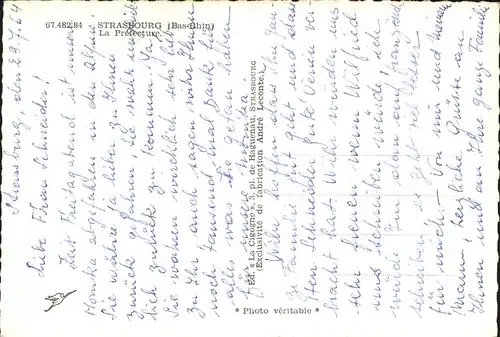 67.482.84 STRASBOURG (Bas-Rhin)
La Préfecture.
Strasbourg, den 29.7.64
Liebe Frau Schneider!
Seit Freitag abend ist unsere
Monika abgefallen in den
Sie wäre ja lieber zu Ihnen
zurück gefahren, Sie weint
lich zurück zu kommen. Ja,
Sie waren wirklich sehr lieb
zu Ihr auch sagen wir Ihnen
noch tausend mal Dank für
alles was Sie getan haben
für
Wir hoffen dass Ihr
ze Familie gut geht und dass
Herr Schneider gute Venen
bracht hat. Wir würden uns
sehr freuen wenn Wilfried
uns schreiben würde, ich
würde Ihm dann auf französisch
schreiben es geht viel besser
für mich. Von mir und meinem
Mann, herzliche Grüsse an
Ihnen und an Ihre ganze Familie
Ed. « La Cigogne », 3, pl. de Haguenau, STRASBOURG
(Exclusivité de fabrication André Leconte.)
* Photo véritable *